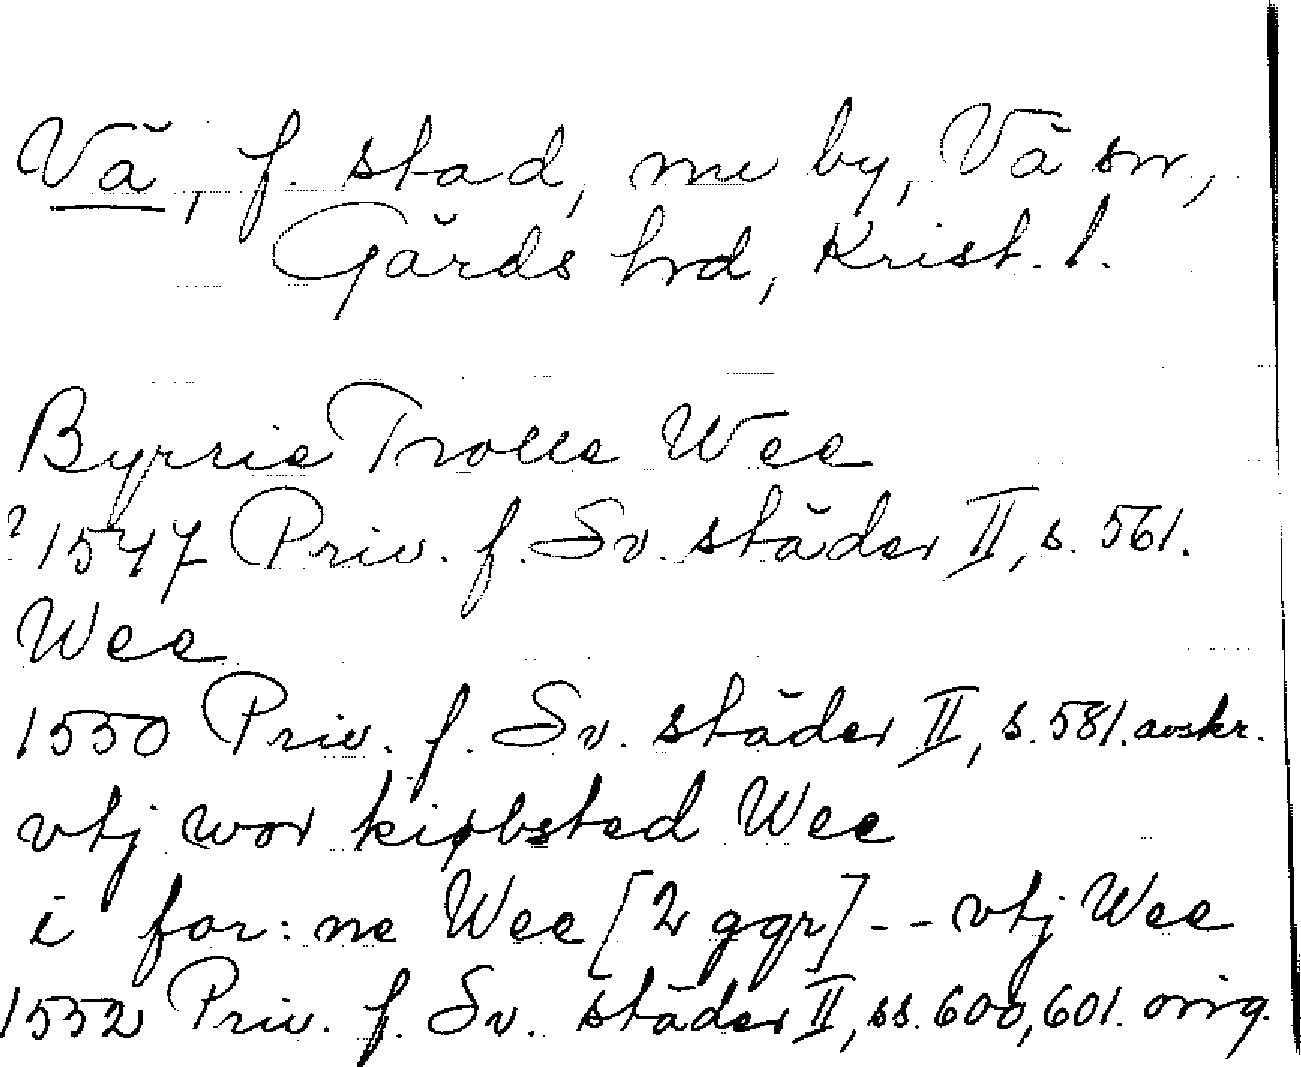 Vä, f. stad, nu by, Vä sn,
Gärds hrd, Krist. l.
Byrrie Trolle Wee
? 1547 Priv. f. Sv. städer II, s. 561.
Wee
1550 Priv. f. Sv. städer II, s. 581. avskr.
vtj wor kiøbsted Wee
i for:ne Wee [2 ggr] -- vtj Wee
1552 Priv. f. Sv. städer II, ss. 600, 601. orig.